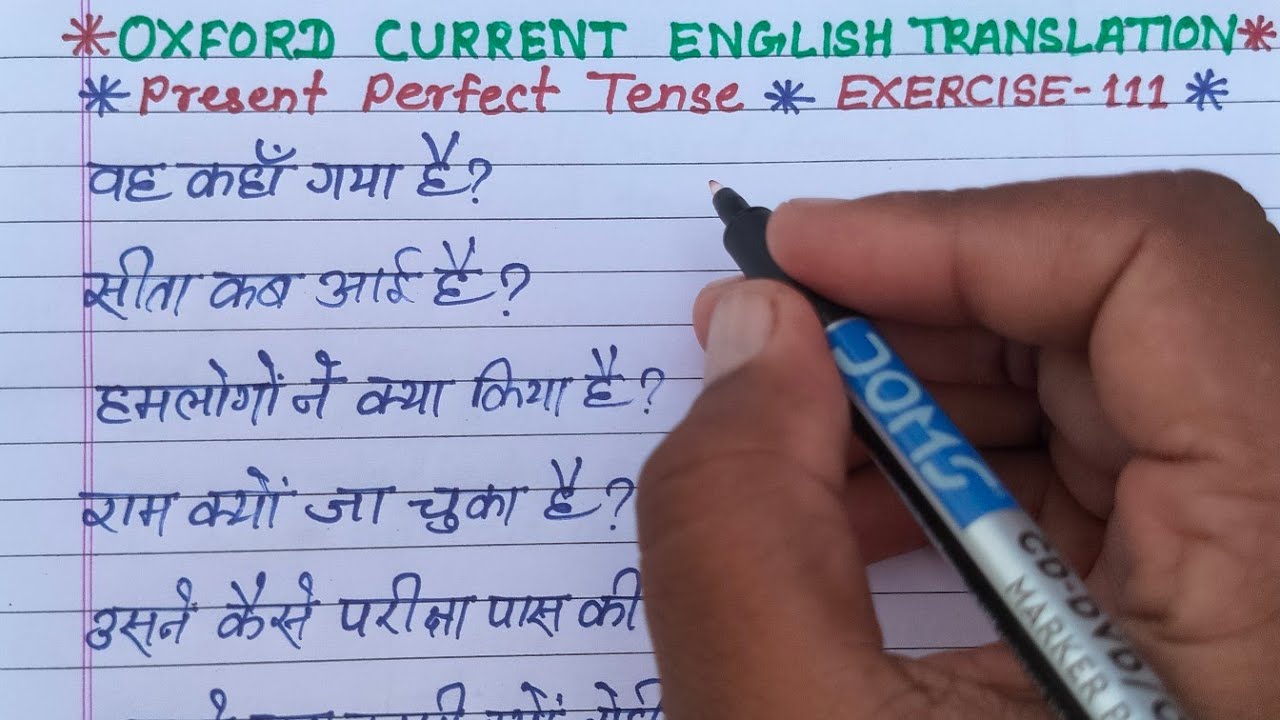 *OXFORD CURRENT ENGLISH TRANSLATION*
*Present Perfect Tense * EXERCISE-111 *
वह कहाँ गया है?
सीता कब आई है?
हमलोगों ने क्या किया है?
राम क्यों जा चुका है?
उसने कैसे परीक्षा पास की
DOMS
CD-DVD/
MARKER P